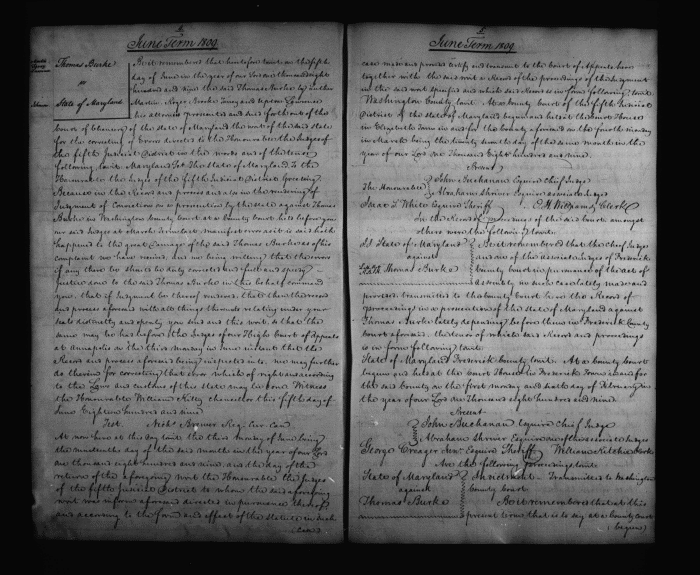 June Term 1809
Thomas Burke
vs
State of Maryland
Be it remembered that heretofore to wit on the fifth
day of June in the year of our Lord one thousand eight
hundred and nine the said Thomas Burke by
his attorney prosecuted and sued forth out of the
court of Chancery of the state of Maryland the writ of the said state
for the correcting of errors directed to the Honourable the Judges of
the fifth Judicial District in the words and of the tenor
following to wit Maryland Sct The State of Maryland To the
Honourable the Judges of the fifth Judicial District Greeting
Because in the Record and process and also in the rendering of
Judgment of Conviction on a prosecution by the state against Thomas
Burke in Washington County Court at a County Court held before you
our said Judges at March Term last manifest error as it is said hath
happened to the great Damage of the said Thomas Burke as of his
complaint we have received and we being willing that the error
if any there be should be duly corrected and full and speedy
Justice done to the said Thomas Burke in this behalf command
you that if Judgment be thereof rendered that then the record
and process aforesaid with all things thereunto relating under your
seals distinctly and openly you send and this writ so that the
same may be had before the Judges of our High Court of Appeals
at Annapolis on the third monday in June instant that the
Record and process aforesaid being inspected into we may further
do therein for correcting that error which of right and according
to the Laws and customs of this state may be done Witness
the Honourable William Kilty chancellor this fifth day of
June Eighteen hundred and nine
Test. Nichs Brewer Reg. Cur. Can.
At now here at this day to wit the third Monday of June being
the nineteenth day of the said month in the year of our Lord
one thousand eight hundred and nine and the day of the
return of the aforegoing writ the Honourable the Judges
of the fifth Judicial District to whom the said aforegoing
writ was in form aforesaid directed in pursuance thereof
and according to the form and effect of the statute in such
(case
June Term 1809
case made and provided certify and transmit to the Court of Appeals here
together with the said writ a Record of the proceedings of the Judgment
in the said writ specified and which said Record is in form following to wit
Washington County to wit. At a County Court of the fifth Judicial
District of the state of Maryland begun and held at the Court House
in Elizabeth Town in and for the County aforesaid on the fourth monday
in March being the day of the same month in the
year of our Lord one Thousand Eight hundred and nine.
Present
The Honourable John Buchanan Esquire Chief Judge
Abraham Shriver Esquire associate Judge
Isaac S. White Esquire Sheriff O. H. Williams Clerk
In the Record of proceedings of the said court amongst
others were the following to wit.
State of Maryland
against
Thomas Burke
Be it remembered that the Chief Judge
and one of the associate Judges of Frederick
County Court in pursuance of the act of
assembly in such case lately made and
provided transmitted to the county Court here the Record of
proceedings in a prosecution of the State of Maryland against
Thomas Burke lately depending before them in Frederick County
Court aforesaid the tenor of which said Record and proceedings
is in form following to wit
State of Maryland Frederick County to wit. At a County Court
begun and held at the Court House in Frederick Town in and for
the said County on the first monday and sixth day of February in
the year of our Lord one Thousand eight hundred and nine.
Present
John Buchanan Esquire Chief Judge
Abraham Shriver Esquire one of the associate Judges
George Creager Junr. Esquire Sheriff William Ritchie Clerk
Are the following proceedings to wit
State of Maryland
against
Thomas Burke
Indictment Transmitted to Washington
County Court
Be it remembered that at this
present term that is to say at a County Court
(begun